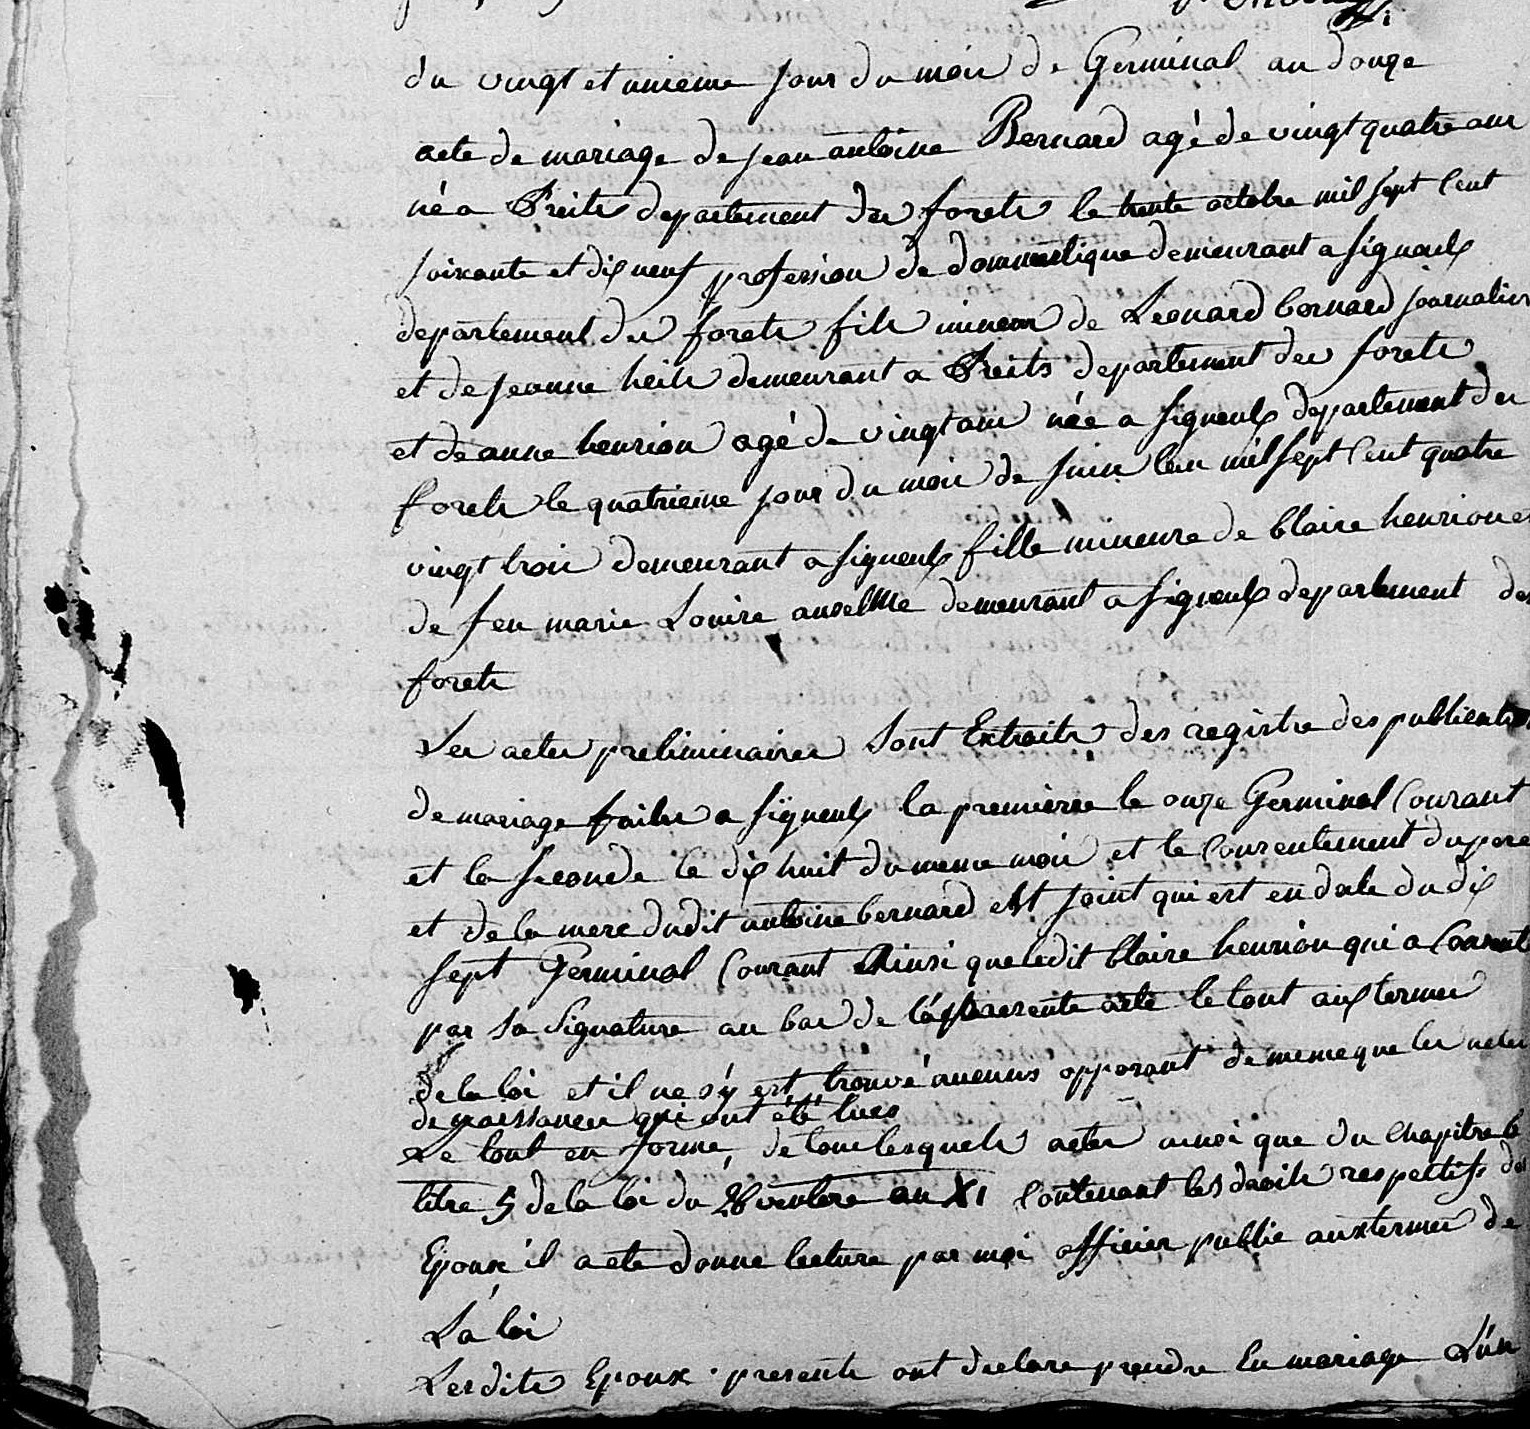 du vingt et unieme jour du mois de Germinal an douze
acte de mariage de jean antoine Bernard agé de vingt quatre ans
né a departement des forets le trente octobre mil sept Cent
soixante et dix neuf profession de dommestique demeurant a signeulx
departement des forets fils mineur de Leonard bernard journalier
et de jeanne heits demeurant a departement des forets
et de anne henrion agé de vingt ans née a signeulx departement des
forets le quatrieme jour du mois de juin l'an mil sept Cent quatre
vingt trois demeurant a signeulx fille mineure de blaise henrion et
de feu marie Louise anselme demeurant a signeulx departement des
forets
Les actes preliminaires sont Extraits des registre des publications
de mariage faites a signeulx la premiere le onze Germinal Courant
et la seconde le dix huit du meme mois et le Consentement du pere
et de la mere dudit antoine bernard est joint qui est en date du dix
sept Germinal Courant Ainsi que ledit blaise henrion qui a Consenti
par sa signature au bas de la presente acte le tout aux termes
de la loi et il ne s'y est trouvé aucuns opposant de meme que les actes
de naissances qui ont été lues
Le tout en forme, de tous lesquels actes ainsi que du chapitre 6
titre 5 de la loi du 26 ventose an XI Contenant les droits respectifs des
Epoux il a ete donne lecture par moi officier public aux termes de
La loi
Lesdits Epoux presents ont declare prendre En mariage L'un